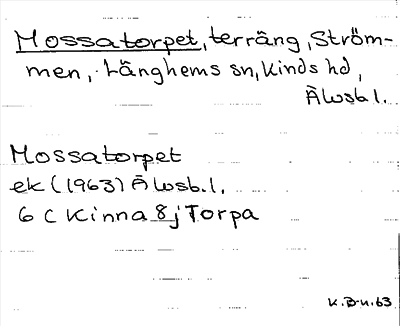 Mossatorpet, terräng, Ström-
men, Länghems sn, Kinds hd,
Älvsb. l.
Mossatorpet
ek (1963) Älvsb. l.
6 C Kinna 8 j Torpa
K.B-n. 63